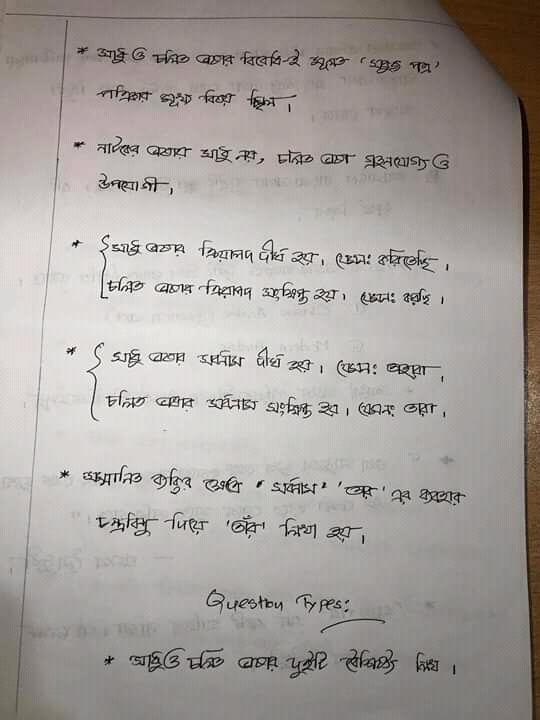 * সাধু ও চলিত ভাষার বিরোধ-ই মূলত 'সবুজ পত্র'
পত্রিকার মুখ্য বিষয় ছিল।
* নাটকের ভাষার সাধু নয়, চলিত ভাষা গ্রহনযোগ্য ও
উপযোগী।
* সাধু ভাষার ক্রিয়াপদ দীর্ঘ হয়। যেমনঃ করিতেছি।
চলিত ভাষার ক্রিয়াপদ সংক্ষিপ্ত হয়। যেমনঃ করছি।
* সাধু ভাষার সর্বনাম দীর্ঘ হয়। যেমনঃ তাহারা।
চলিত ভাষার সর্বনাম সংক্ষিপ্ত হয়। যেমনঃ তারা।
* সম্মানিত ব্যক্তির ক্ষেত্রে 'সর্বনাম' 'তার' এর ব্যবহার
চন্দ্রবিন্দু দিয়ে 'তাঁর' লিখা হয়।
Question Types:
* সাধু ও চলিত ভাষার দুইটি বৈশিষ্ট্য লিখ।